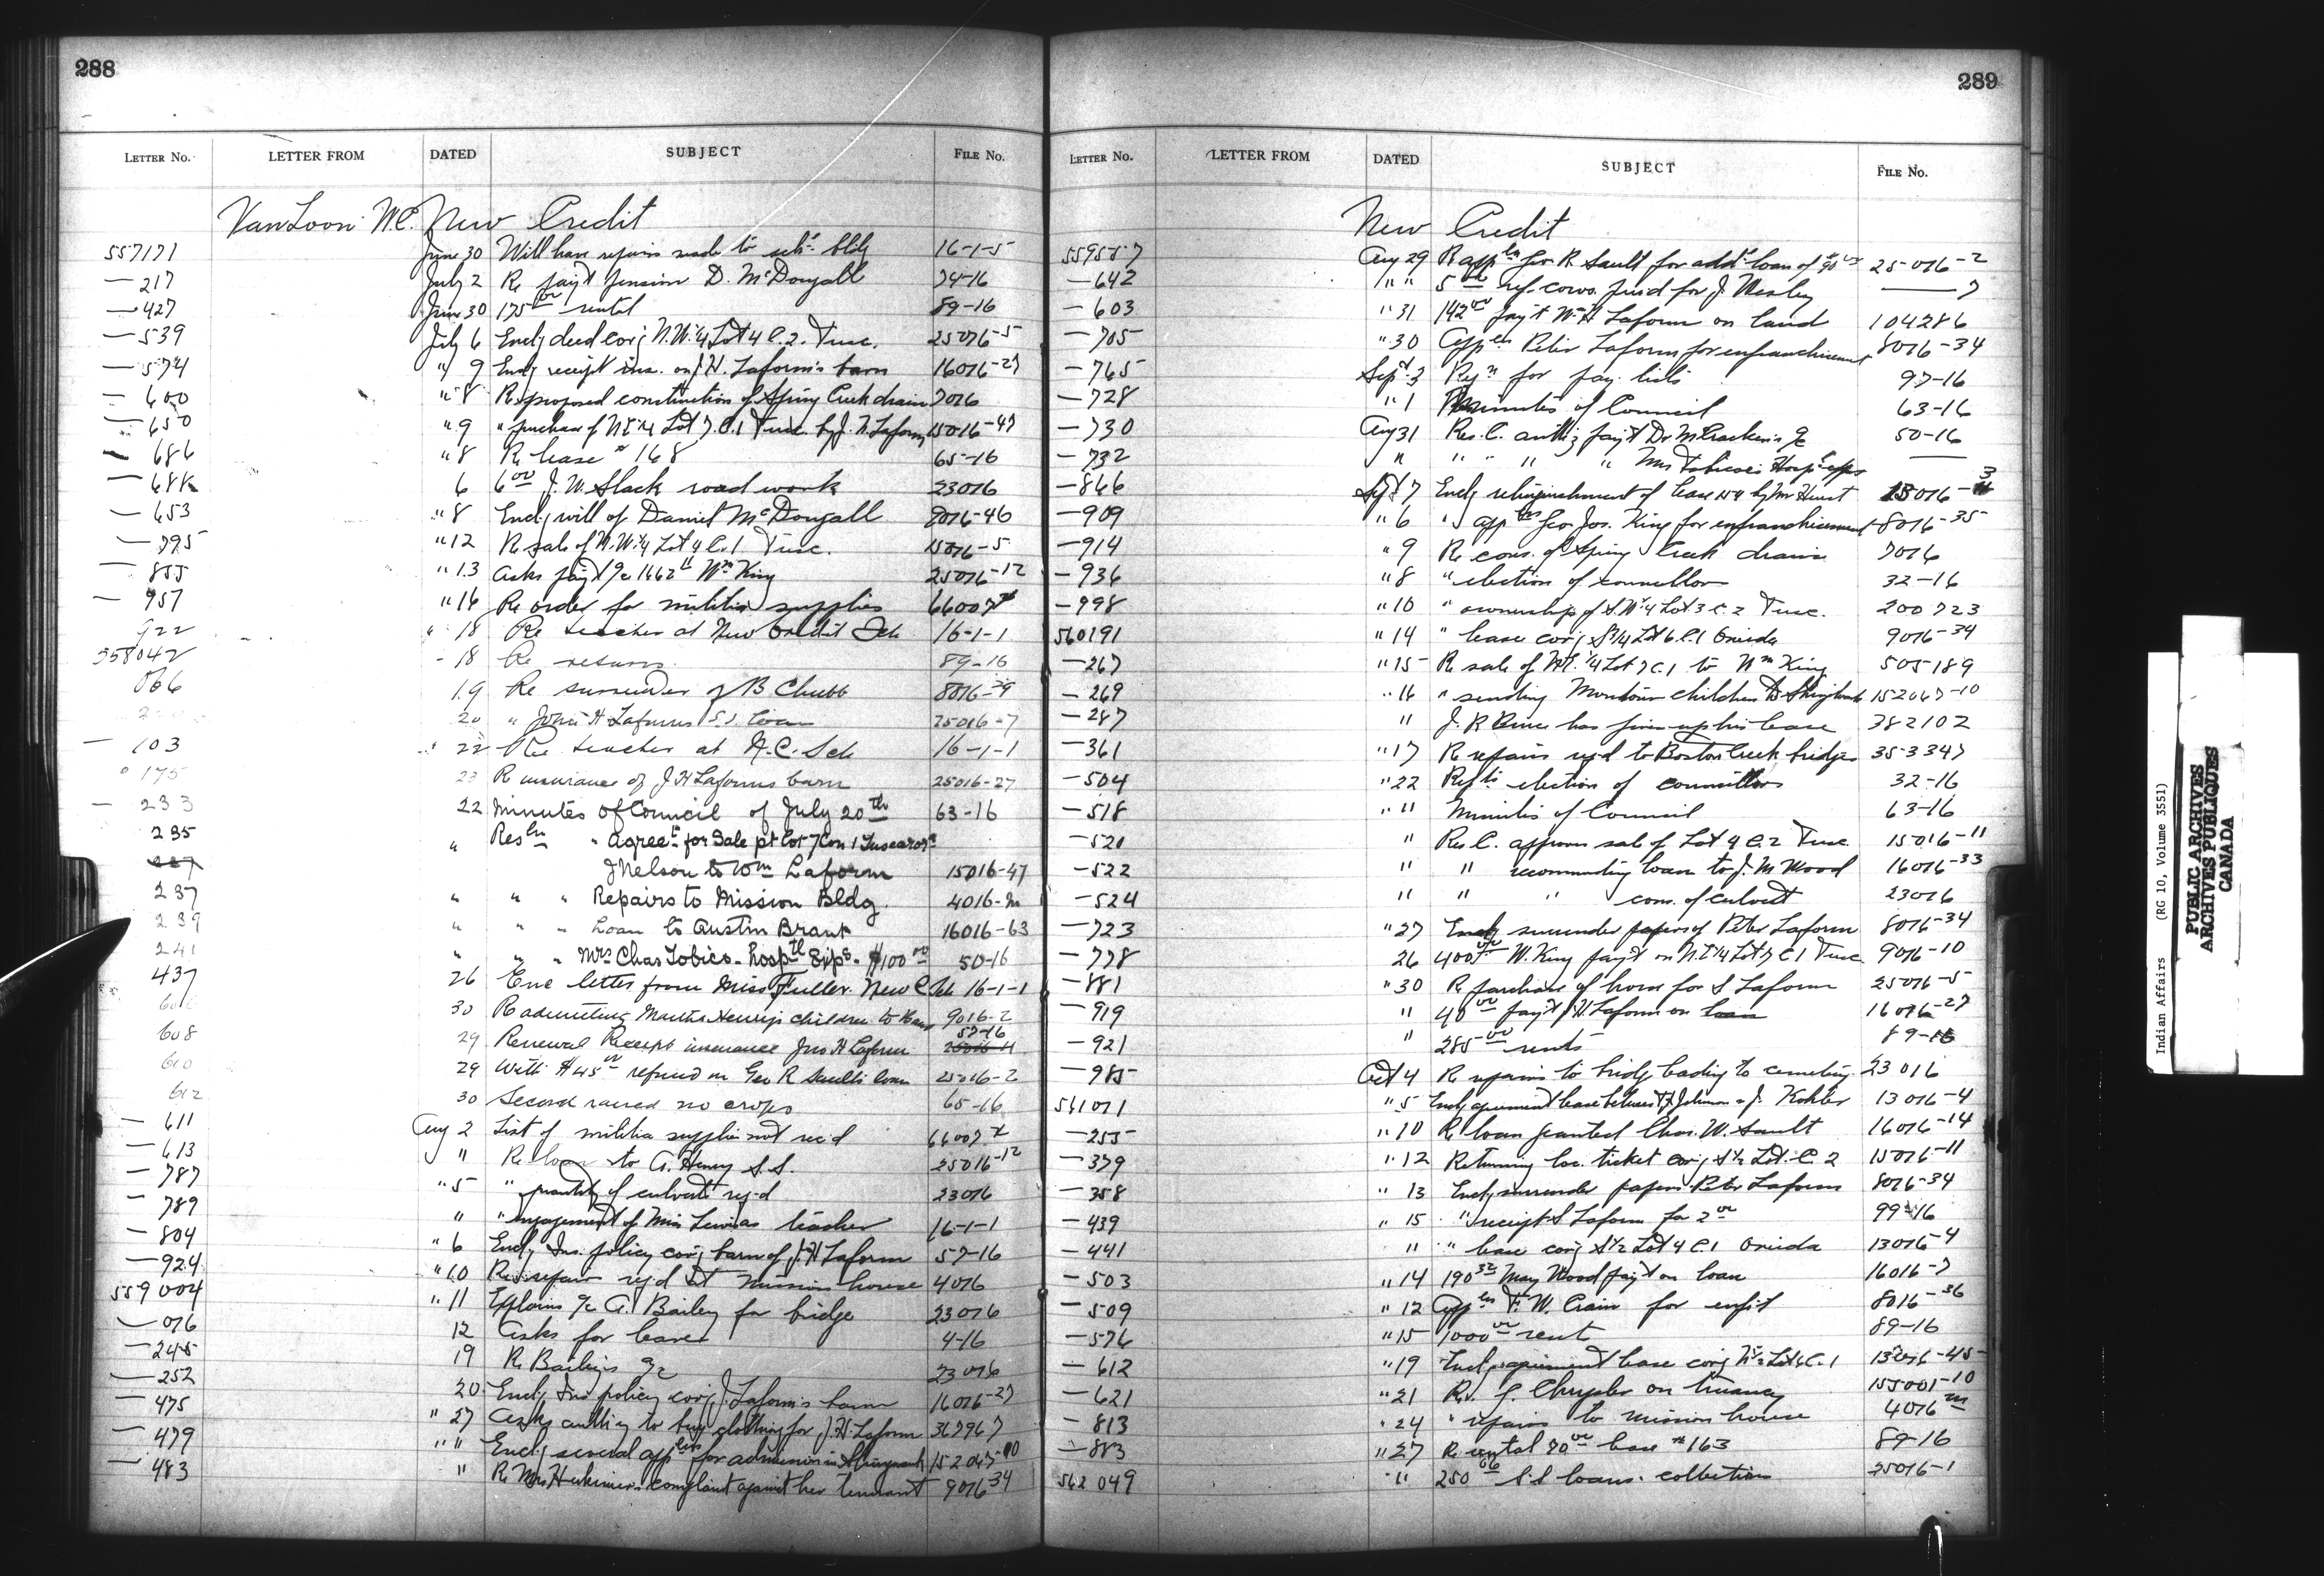 288
LETTER NO. LETTER FROM DATED SUBJECT FILE NO.
VanLoon W.C. New Credit
557171 June 30 Will have repairs made to sch. bldg 16-1-5
— 217 July 2 Re pay't pension D. McDougall 74-16
— 427 June 30 175 00 rental 89-16
— 539 July 6 Encl'g deed cov'g N.W. 1/4 Lot 4 C.2. Tusc. 25016-5
— 574 " 9 Encl'g receipt ins. on J.H. Laform's barn 16016-27
— 600 " 8 Re proposed construction of Spring Creek drain 7016
— 650 " 9 " purchase of N.E. 1/4 Lot 7. C.1 Tusc. by J.N. Laform 15016-47
— 686 " 8 Re lease # 168 65-16
— 688 6 6 00 J.W. Slack road work 23016
— 653 " 8 Encl'g will of Daniel McDougall 9016-46
— 795 " 12 Re sale of N.W. 1/4 Lot 4 C.1. Tusc. 15016-5
— 855 " 13 Asks pay't a/c Wm King 25016-12
— 957 " 16 Re order for militia supplies 66007
922 " 18 Re teacher at New Credit Sch 16-1-1
558042 " 18 Re returns 89-16
066 19 Re surrender of B Chubb 8016-39
20 " John H Laforms S.S. loan 25016-7
— 103 22 Re teacher at N.C. Sch 16-1-1
" 175 23 Re insurance of J H Laforms barn 25016-27
— 233 22 Minutes of Council of July 20th 63-16
235 " Resln " Agreet for Sale pt Lot 7 Con 1 Tuscarora
J Nelson to Wm Laform 15016-47
237 " " " Repairs to Mission Bldg. 4016-m
239 " " " Loan to Austin Brant 16016-63
241 " " " Mrs Chas Tobico - hospth Exps - $100 00 50-16
437 26 Enc letter from Miss Fuller. New C Sch 16-1-1
606 30 Re admitting Martha Henry's children to Band 9016-2
608 29 Renewal Receipt insurance Jno H Laform 57-16
610 29 With $45 00 refund on Geo R Saults loan 25016-2
612 30 Second raised no crops 65-16
— 611 Aug 2 List of militia supplies not rec'd 66007
— 613 " Re loan to A. Henry S.S. 25016-12
— 787 " 5 " quantity of culverts req'd 23016
789 " " engagement of Miss Lewis as teacher 16-1-1
— 804 " 6 Encl'g Ins. policy cov'g barn of J.H Laform 57-16
— 924 " 10 Re repair req'd at mission house 4016
559004 " 11 Explains a/c A. Bailey for bridge 23016
— 076 12 Asks for leave 4-16
— 245 19 Re Bailey's a/c 23016
— 252 20 Encl'g Ins policy cov'g J. Laform's barn 16016-27
— 475 " 27 Asks auth'y to buy clothing for J.H. Laform 367967
— 479 " " Encl'g several applns for admission in Shingwauk 152047-10
— 483 " Re Mrs Herkimer's complaint against her tennant 9016-34
289
LETTER NO. LETTER FROM DATED SUBJECT FILE NO.
New Credit
559587 Aug 29 R appln Geo R Sault for add'l loan of 90 00 25016-2
— 642 " " 5 00 ref. cows. for J. Wesley ——7
— 603 " 31 142 00 pay't W.H Laform on land 104286
— 705 " 30 Appln Peter Laform for enfranchisement 8016-34
— 765 Sept. 3 Reqn for pay. lists 97-16
— 728 " 1 Minutes of Council 63-16
— 730 Aug 31 Res. C. auth'g pay't Dr McCracken's a/c 50-16
— 732 " " " " " Mrs Tobico's Hosp'l exps ——
— 846 Sept 7 Encl'g relinquishment of lease by Mr Hurst 13016-3
— 909 " 6 " applns Geo. Jos. King for enfranchisement 8016-35
— 914 " 9 Re cons. of Spring Creek drain 7016
— 936 " 8 " election of councillors 32-16
— 998 " 10 " ownership of S.W. 1/4 Lot 3 C. 2 Tusc. 200723
560191 " 14 " lease cov'g S 1/4 Lot 6 C.1 Oneida 9016-34
— 267 " 15 Re sale of N.E. 1/4 Lot 7 C.1 to Wm King 505189
— 269 " 16 " sending Montour children to Shingwauk 152047-10
— 287 " J. R Price has given up his lease 382102
— 361 " 17 Re repairs req'd to Boston Creek bridges 353347
— 504 " 22 election of councillors 32-16
— 518 " " Minutes of Council 63-16
— 520 " Res. C. approves sale of Lot 4 C. 2 Tusc. 15016-11
— 522 " " recommending loan to J. M Wood 16016-33
— 524 " " " cons. of culvert 23016
— 723 " 27 Encl'g surrender papers of Peter Laform 8016-34
— 778 26 400 00 W. King pay't on N.E. 1/4 Lot 7 C 1 Tusc 9016-10
— 881 " 30 Re purchase of horse for S Laform 25016-5
— 919 " 40 00 pay't J.H. Laform on loan 16016-27
— 921 " 285 00 rents 89-16
— 985 Oct 4 Re repairs to bridge leading to cemetery 23016
561071 " 5 Encl'g agreement lease between Johnson & J. Kohler 13016-4
— 255 " 10 Re loan granted Chas. W. Sault 16016-14
— 379 " 12 Returning loc. ticket cov'g S 1/2 Lot. C. 2 15016-11
— 358 " 13 Encl'g surrender papers Peter Laform 8016-34
— 439 " 15 " receipt S Laform for 2 00 99-16
— 441 " " lease cov'g S 1/2 Lot 4 C.1 Oneida 13016-4
— 503 " 14 190 32 May Wood pay't on loan 16016-7
— 509 " 12 Appln F.W. Crain for enf't 8016-36
— 576 " 15 1000 00 rent 89-16
— 612 " 19 Encl'g agreement lease cov'g N 1/2 Lot 6 C. 1 13016-45
— 621 " 21 Re. J. Chrysler on tenancy 155001-10
— 813 " 24 " repairs to mission house 4016 m
— 883 " 27 Re rental 70 00 lease # 163 89-16
562049 " 250 06 S.S loans. collections 25016-1
Indian Affairs (RG 10, Volume 3551)
PUBLIC ARCHIVES
ARCHIVES PUBLIQUES
CANADA